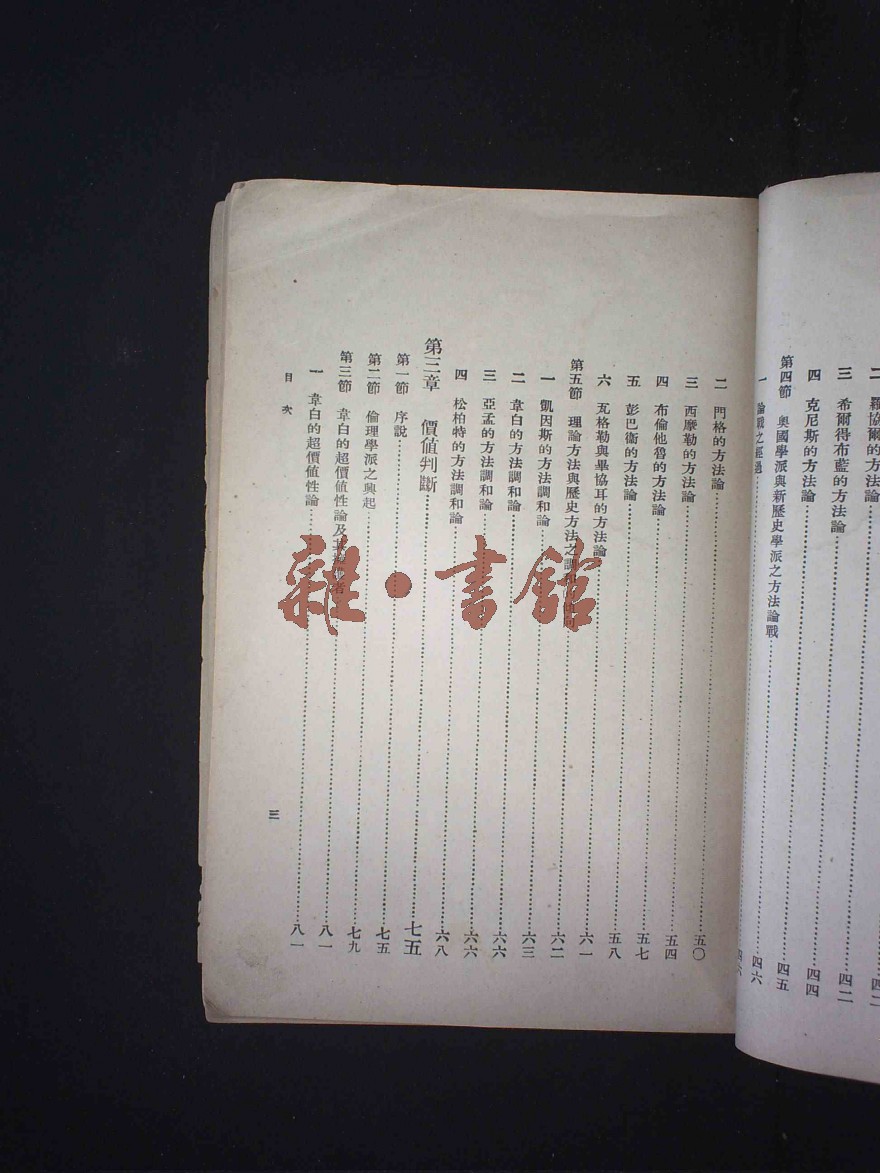 二 羅協爾的方法論 四二
三 希爾得布藍的方法論 四二
四 克尼斯的方法論 四四
第四節 奧國學派與新歷史學派之方法論戰 四五
一 論戰之經過 四六
四六
二 門格的方法論 五〇
三 西摩勒的方法論 五四
四 布倫他魯的方法論 五七
五 彭巴衞的方法論 五八
六 瓦格勒與畢協耳的方法論 六一
第五節 理論方法與歷史方法之調和 六二
一 凱因斯的方法調和論 六三
二 韋白的方法調和論 六六
三 亞孟的方法調和論 六六
四 松柏特的方法調和論 六八
第三章 價值判斷 七五
第一節 序說 七五
第二節 倫理學派之興起 七九
第三節 韋白的超價值性論及其 者 八一
一 韋白的超價值性論 八一
目次
三
雜·書館